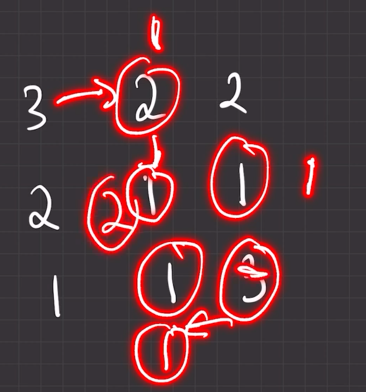 1
3 2 2
2 2 1 1 1
1 1 3
1